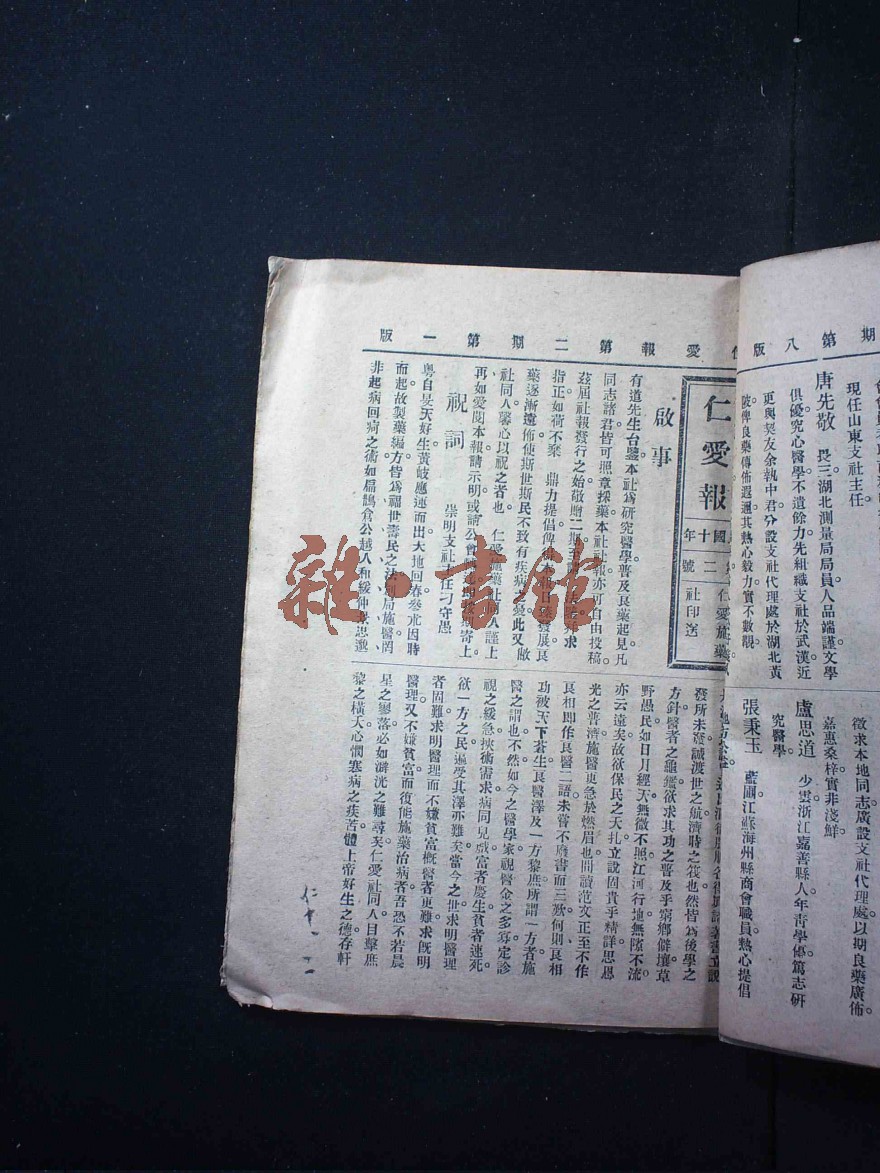 期第八版
現任山東支社主任。
唐先敬 畏三湖北測量局局員人品端謹文學
俱優究心醫學不遺餘力先組織支社於武漢近
更與契友余執中君分設支社代理處於湖北黃
陂俾良藥傳佈遐邇其熱心毅力實不數覯。
徵求本地同志廣設支社代理處以期良藥廣佈
嘉惠桑梓實非淺鮮。
盧思道 少雲浙江嘉善縣人年靑學優篤志研
究醫學。
張秉玉 藍圃江蘇海州縣商會職員熱心提倡
愛報第二期第一版
仁愛報
國十年
二號
仁愛施藥
社印送
啟事
有道先生台鑒本社爲研究醫學普及良藥起見凡
同志諸君皆可照章採藥本社社報亦可自由投稿
茲屆社報發行之始敬贈二期至求
指正如荷不棄 鼎力提倡俾發展良
藥逐漸遠佈使斯世斯民不致有疾病憂此又敝
社同人馨心以祝之者也 仁愛施藥社同人謹上
再如愛閱本報請示明或請公會寄上
祝詞 崇明支社主任刁守愚
粤自旻天好生黃歧應運而出大地回春參朮因時
而起故製藥編方皆爲福世壽民之法設局施醫罔
非起病回疴之術如扁鵲倉公越人和緩仲景思邈
發所未發誠渡世之航濟時之筏也然皆爲後學之
方針醫者之龜鑑欲求其功之普及乎窮鄉僻壤草
野愚民如日月經天無微不照江河行地無隨不流
亦云遠矣故欲保民之夭扎立說固貴乎精詳思恩
光之普濟施醫更急於燃眉也間讀范文正至不作
良相即作良醫二語未嘗不廢書而三歎何則良相
功被天下蒼生良醫澤及一方黎庶所謂一方者施
醫之謂也不然如今之醫學家視醫金之多寡定診
視之緩急挾術需求病同兒戲富者慶生貧者速死
欲一方之民遍受其澤亦難矣當今之世求明醫理
者固難求明醫理而不嫌貧富概醫者更難求既明
醫理又不嫌貧富而復能施藥治病者吾恐不若晨
星之寥落必如澼洸之難尋矣仁愛社同人目擊庶
黎之橫夭心憫寒病之疾苦體上帝好生之德存軒
雜·書館